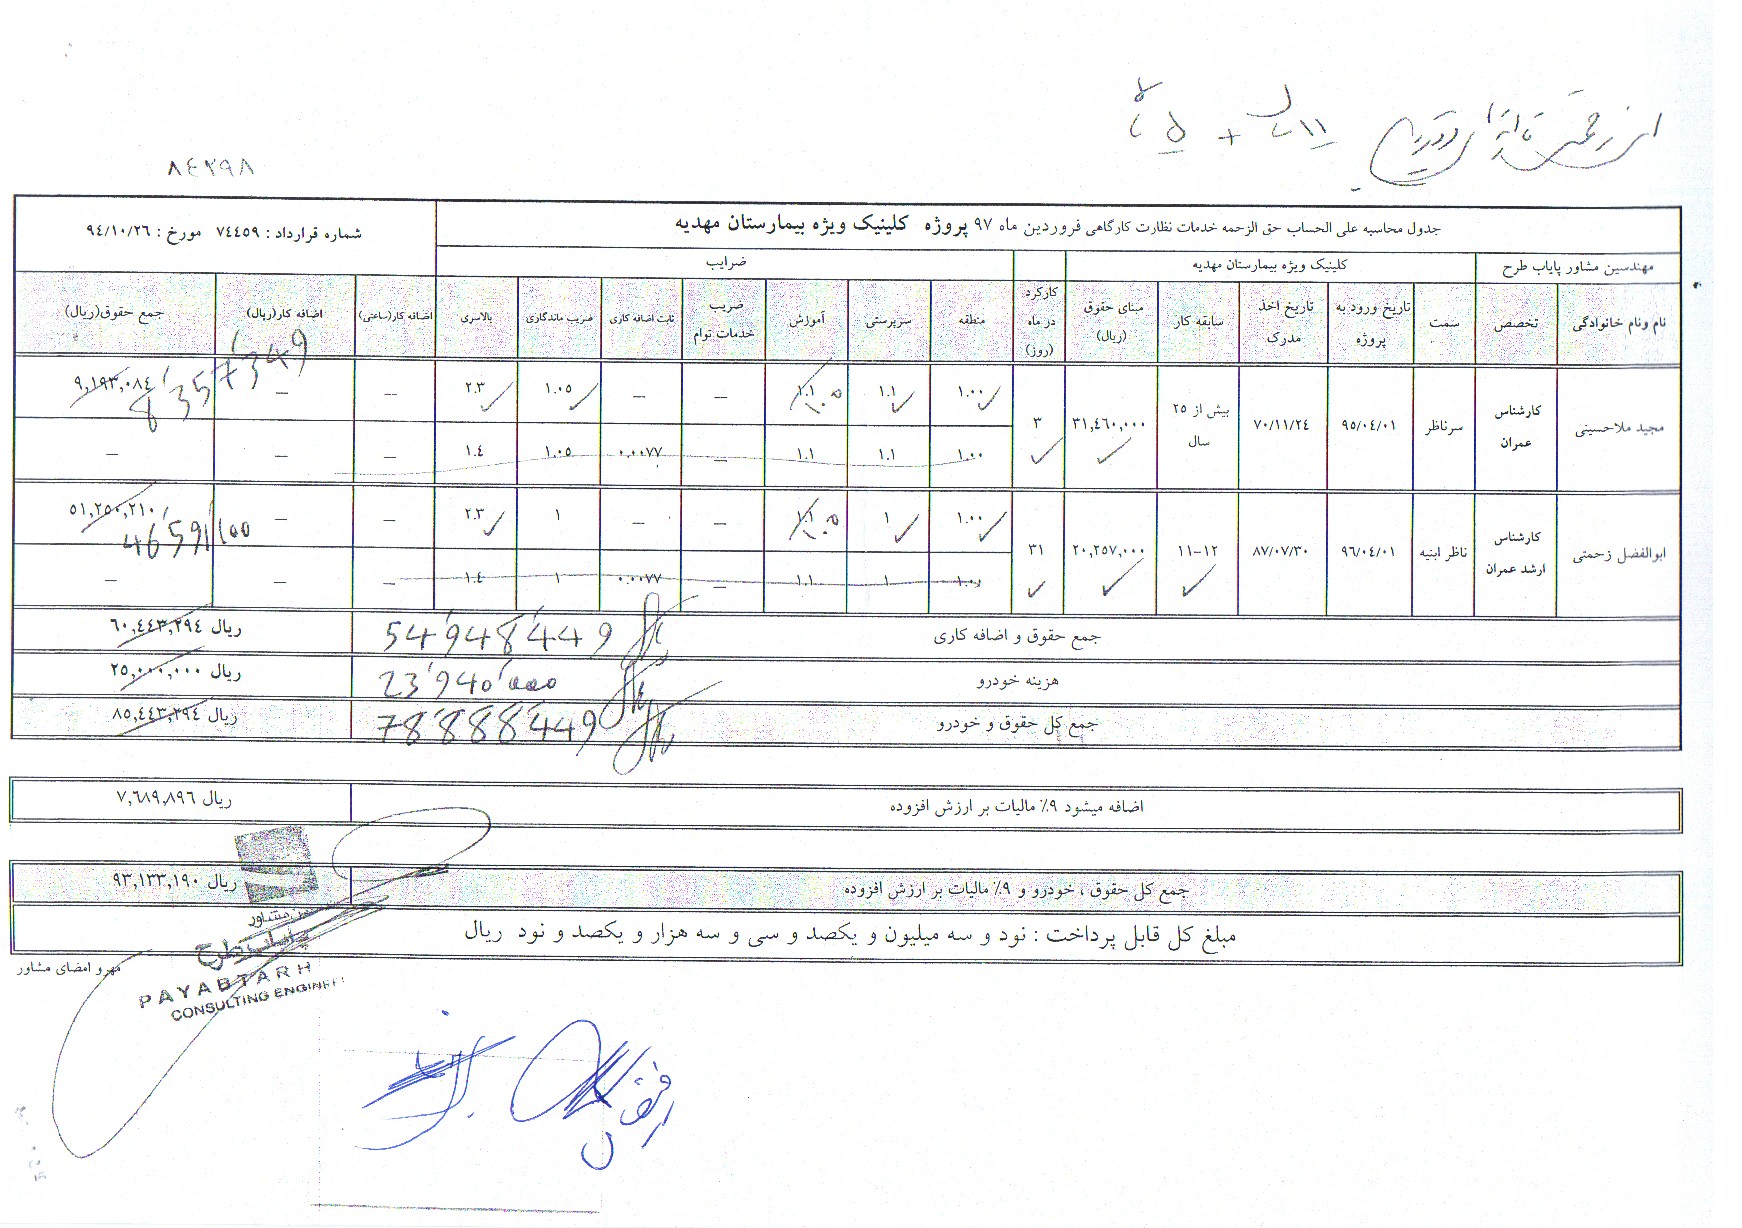 ۱۱ سال + ۵ ماه
۸۴۲۹۸
جدول محاسبه علی الحساب حق الزحمه خدمات نظارت کارگاهی فروردین ماه ۹۷ پروژه کلینیک ویژه بیمارستان مهدیه
شماره قرارداد : ۷۴۴۵۹ مورخ : ۹۴/۱۰/۲۶
مهندسین مشاور پایاب طرح
کلینیک ویژه بیمارستان مهدیه
ضرایب
نام ونام خانوادگی
تخصص
سمت
تاریخ ورود به پروژه
تاریخ اخذ مدرک
سابقه کار
مبنای حقوق (ریال)
کارکرد در ماه (روز)
منطقه
سرپرستی
آموزش
ضریب خدمات توام
ثابت اضافه کاری
ضریب ماندگاری
بالاسری
اضافه کار(ساعتی)
اضافه کار(ریال)
جمع حقوق(ریال)
مجید ملاحسینی
کارشناس عمران
سرناظر
۹۵/۰۴/۰۱
۷۰/۱۱/۲۴
بیش از ۲۵ سال
۳۱,۴۶۰,۰۰۰
۳
۱.۰۰ ۱.۱ ۱.۱ ۱.۰۰ — — ۱.۰۵ ۲.۳ — — ۹,۱۹۳,۰۸۴
8'357'349
۱.۰۰ ۱.۱ ۱.۱ — ۰.۰۰۷۷ ۱.۰۵ ۱.۴ — — —
ابوالفضل زحمتی
کارشناس ارشد عمران
ناظر ابنیه
۹۶/۰۴/۰۱
۸۷/۰۷/۳۰
۱۱-۱۲
۲۰,۲۵۷,۰۰۰
۳۱
۱.۰۰ ۱ ۱.۱ ۱.۰۰ — — ۱ ۲.۳ — — ۵۱,۲۵۰,۲۱۰
46'591'100
۱.۰۰ ۱ ۱.۱ — ۰.۰۰۷۷ ۱ ۱.۴ — — —
جمع حقوق و اضافه کاری 54'948'449 ۶۰,۴۴۳,۲۹۴ ریال
هزینه خودرو 23'940'000 ۲۵,۰۰۰,۰۰۰ ریال
جمع کل حقوق و خودرو 78'888'449 ۸۵,۴۴۳,۲۹۴ ریال
اضافه میشود ۹٪ مالیات بر ارزش افزوده ۷,۶۸۹,۸۹۶ ریال
جمع کل حقوق ، خودرو و ۹٪ مالیات بر ارزش افزوده ۹۳,۱۳۳,۱۹۰ ریال
مبلغ کل قابل پرداخت : نود و سه میلیون و یکصد و سی و سه هزار و یکصد و نود ریال
مهر و امضای مشاور
مشاور
پایاب طرح
PAYABTARH
CONSULTING ENGINEE